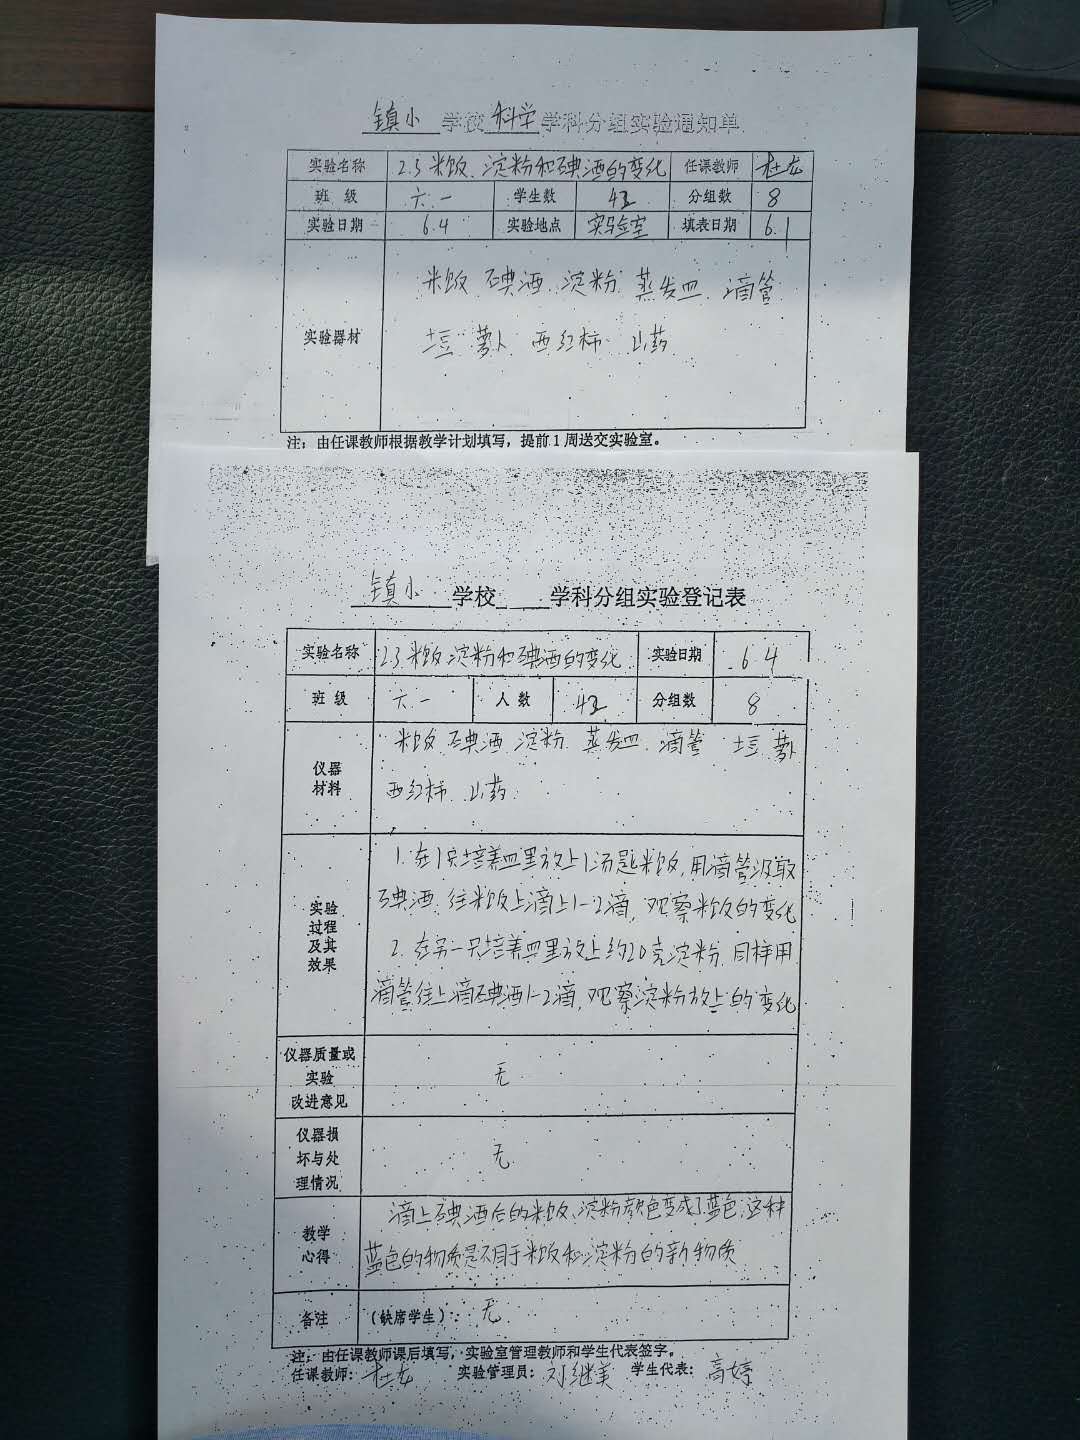 镇小学校科学学科分组实验通知单
实验名称 2.3米饭、淀粉和碘酒的变化 任课教师 杜龙
班 级 六一 学生数 42 分组数 8
实验日期 6.4 实验地点 实验室 填表日期 6.1
实验器材 米饭 碘酒 淀粉 蒸发皿 滴管
土豆 萝卜 西红柿 山药
注：由任课教师根据教学计划填写，提前1周送交实验室。
镇小学校 学科分组实验登记表
实验名称 2.3米饭 淀粉和碘酒的变化 实验日期 6.4
班 级 六一 人 数 42 分组数 8
仪器 材料 米饭 碘酒 淀粉 蒸发皿 滴管 土豆 萝卜
西红柿 山药
实验 过程 及其 效果 1.在1只培养皿里放上1汤匙米饭,用滴管汲取
碘酒.往米饭上滴上1-2滴,观察米饭的变化
2.在另一只培养皿里放上约20克淀粉.同样用
滴管往上滴碘酒1-2滴,观察淀粉放上的变化
仪器质量或 实验 改进意见 无
仪器损 坏与处 理情况 无
教学 心得 滴上碘酒后的米饭、淀粉颜色变成了蓝色,这种
蓝色的物质是不同于米饭和淀粉的新物质
备注 (缺席学生): 无
注：由任课教师课后填写，实验室管理教师和学生代表签字。
任课教师: 杜龙 实验管理员: 刘继美 学生代表: 高婷